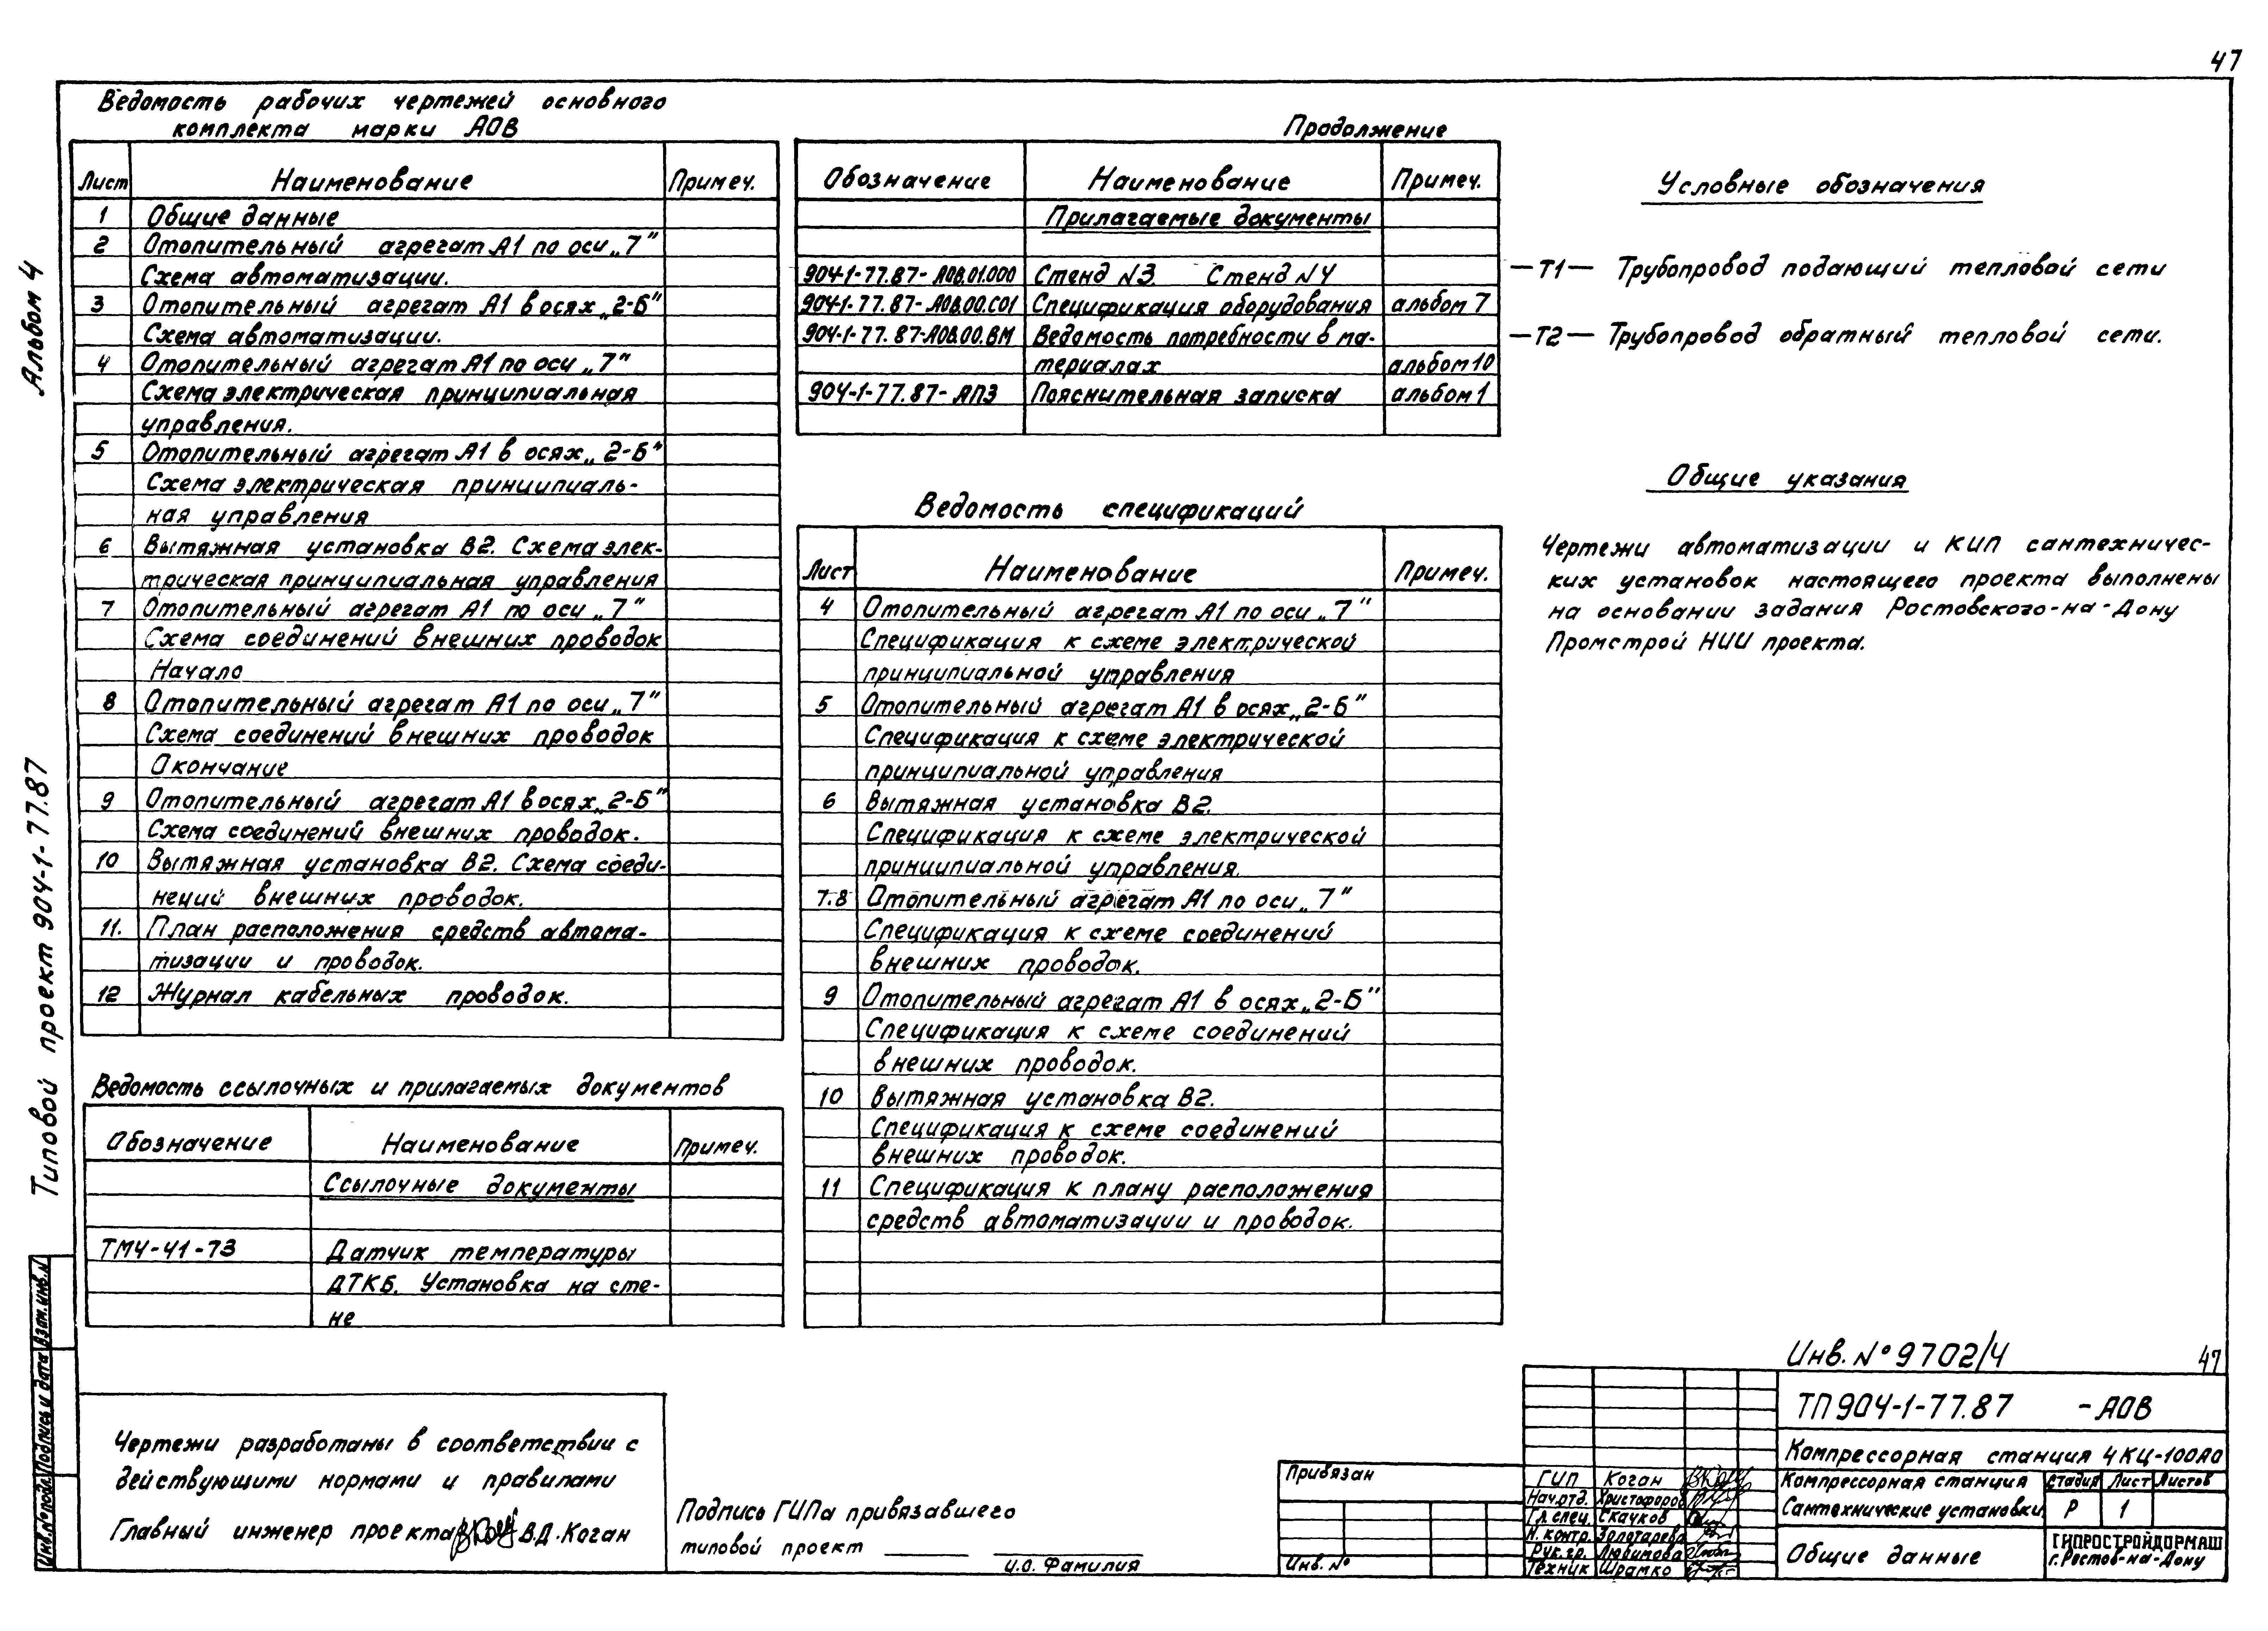 47
Альбом 4
Типовой проект 904-1-77.87
Ведомость рабочих чертежей основного
комплекта марки АОВ
Лист Наименование Примеч.
1 Общие данные
2 Отопительный агрегат А1 по оси „7"
Схема автоматизации.
3 Отопительный агрегат А1 в осях „2-Б"
Схема автоматизации.
4 Отопительный агрегат А1 по оси „7"
Схема электрическая принципиальная
управления.
5 Отопительный агрегат А1 в осях „2-Б"
Схема электрическая принципиаль-
ная управления
6 Вытяжная установка В2. Схема элек-
трическая принципиальная управления
7 Отопительный агрегат А1 по оси „7"
Схема соединений внешних проводок
Начало
8 Отопительный агрегат А1 по оси „7"
Схема соединений внешних проводок
Окончание
9 Отопительный агрегат А1 в осях „2-Б"
Схема соединений внешних проводок.
10 Вытяжная установка В2. Схема соеди-
нений внешних проводок.
11. План расположения средств автома-
тизации и проводок.
12 Журнал кабельных проводок.
Ведомость ссылочных и прилагаемых документов
Обозначение Наименование Примеч.
Ссылочные документы
ТМ4-41-73 Датчик температуры
ДТКБ. Установка на сте-
не
Продолжение
Обозначение Наименование Примеч.
Прилагаемые документы
904-1-77.87-АОВ.01.000 Стенд N3. Стенд N4
904-1-77.87-АОВ.00.СО1 Спецификация оборудования альбом 7
904-1-77.87-АОВ.00.ВМ Ведомость потребности в ма-
териалах альбом 10
904-1-77.87-АПЗ Пояснительная записка альбом 1
Ведомость спецификаций
Лист Наименование Примеч.
4 Отопительный агрегат А1 по оси „7"
Спецификация к схеме электрической
принципиальной управления
5 Отопительный агрегат А1 в осях „2-Б"
Спецификация к схеме электрической
принципиальной управления
6 Вытяжная установка В2.
Спецификация к схеме электрической
принципиальной управления.
7.8 Отопительный агрегат А1 по оси „7"
Спецификация к схеме соединений
внешних проводок.
9 Отопительный агрегат А1 в осях „2-Б"
Спецификация к схеме соединений
внешних проводок.
10 Вытяжная установка В2.
Спецификация к схеме соединений
внешних проводок.
11 Спецификация к плану расположения
средств автоматизации и проводок.
Условные обозначения
—Т1— Трубопровод подающий тепловой сети
—Т2— Трубопровод обратный тепловой сети.
Общие указания
Чертежи автоматизации и КИП сантехничес-
ких установок настоящего проекта выполнены
на основании задания Ростовского-на-Дону
Промстрой НИИ проекта.
Инв.№подл. Подпись и дата Взам.инв.N
Чертежи разработаны в соответствии с
действующими нормами и правилами
Главный инженер проекта В.Д.Коган
Подпись ГИПа привязавшего
типовой проект
И.О. Фамилия
Привязан
Инв. №
Инв. № 9702/4 47
ТП 904-1-77.87 -АОВ
Компрессорная станция 4КЦ-100А0
ГИП Коган
Нач.отд. Христофоров
Гл.спец. Скачков
Н.контр. Золотарева
Рук.гр. Любимова
Техник Шрамко
Компрессорная станция
Сантехнические установки
Стадия Лист Листов
Р 1
Общие данные
ГИПРОСТРОЙДОРМАШ
г.Ростов-на-Дону